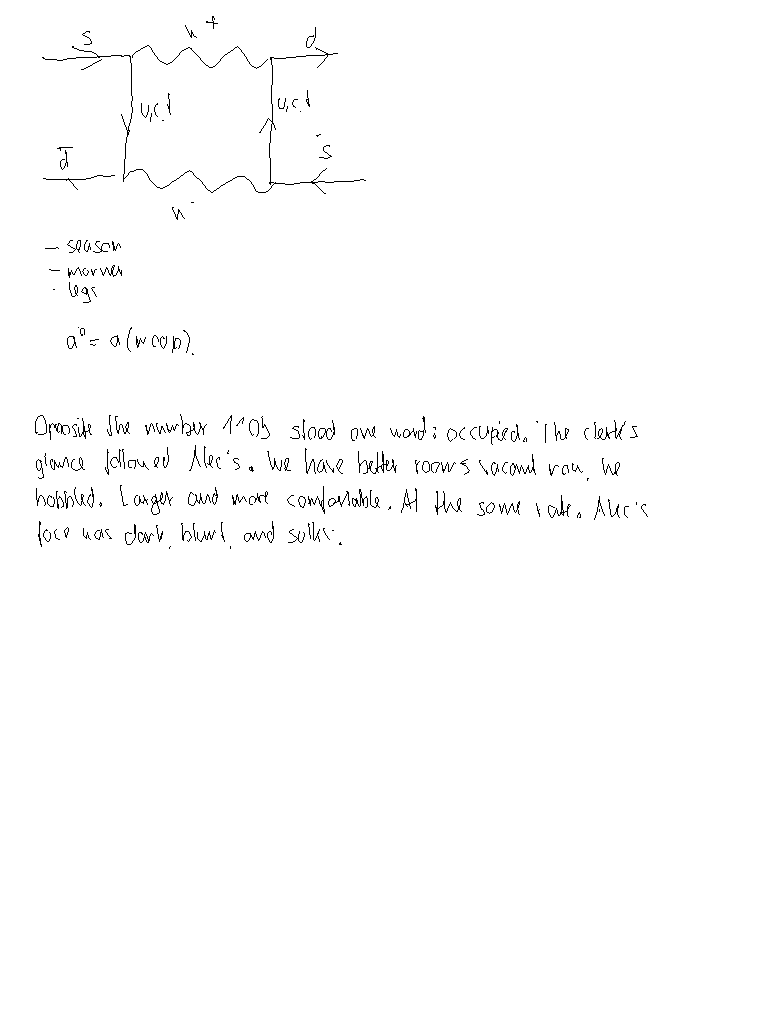 s
d
u,c,t
u,c,t
d̄
s̄
- season
- morner
- legs
Opposite the number 1105 stood one word: occupied. The clerk's
glance followed Alec's. We have better rooms vacant now, he
hobbled. Larger and more comfortable. At the same rate. Alec's
face was dark, blunt, and sulky.